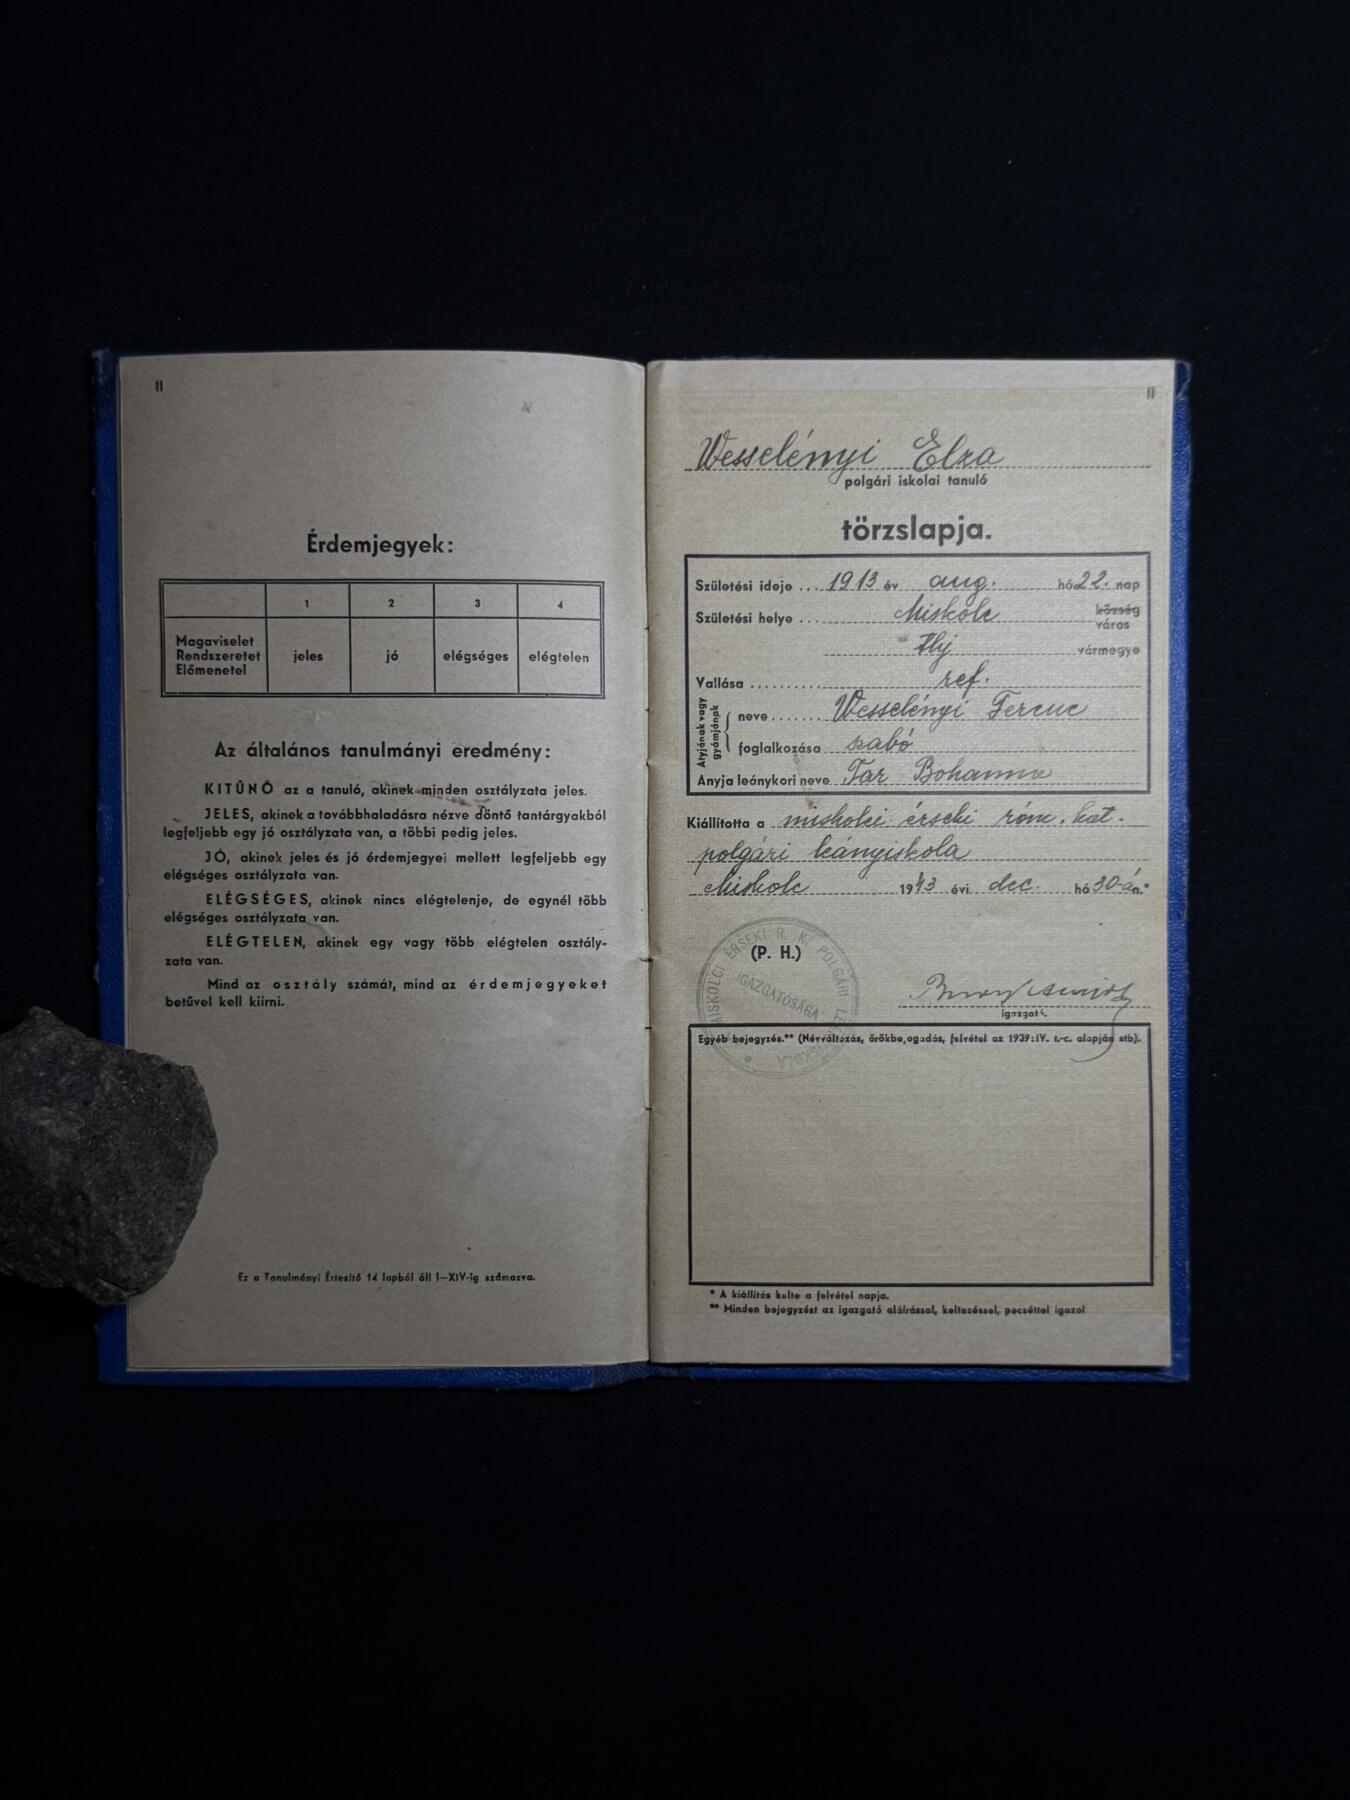 II
Érdemjegyek:
1 2 3 4
Magaviselet
Rendszeretet jeles jó elégséges elégtelen
Előmenetel
Az általános tanulmányi eredmény:
KITŰNŐ az a tanuló, akinek minden osztályzata jeles.
JELES, akinek a továbbhaladásra nézve döntő tantárgyakból
legfeljebb egy jó osztályzata van, a többi pedig jeles.
JÓ, akinek jeles és jó érdemjegyei mellett legfeljebb egy
elégséges osztályzata van.
ELÉGSÉGES, akinek nincs elégtelenje, de egynél több
elégséges osztályzata van.
ELÉGTELEN, akinek egy vagy több elégtelen osztály-
zata van.
Mind az osztály számát, mind az érdemjegyeket
betűvel kell kiírni.
Ez a Tanulmányi Értesítő 14 lapból áll I—XIV-ig számozva.
II
Wesselényi Elza
polgári iskolai tanuló
törzslapja.
Születési ideje ... 1913 év aug. hó 22. nap
Születési helye ... Miskolc község
város
vármegye
Vallása .......... ref.
Atyjának vagy
gyámjának
neve ....... Wesselényi Ferenc
foglalkozása szabó
Anyja leánykori neve Tar
Kiállította a miskolci érseki róm. kat.
polgári leányiskola
Miskolc 1943 évi dec. hó 30-án.*
(P. H.)
MISKOLCI ÉRSEKI R. K. POLGÁRI LEÁNYISKOLA
IGAZGATÓSÁGA
igazgató.
Egyéb bejegyzés.** (Névváltozás, örökbefogadás, felvétel az 1939:IV. t.-c. alapján stb).
* A kiállítás kelte a felvétel napja.
** Minden bejegyzést az igazgató aláírással, keltezéssel, pecséttel igazol